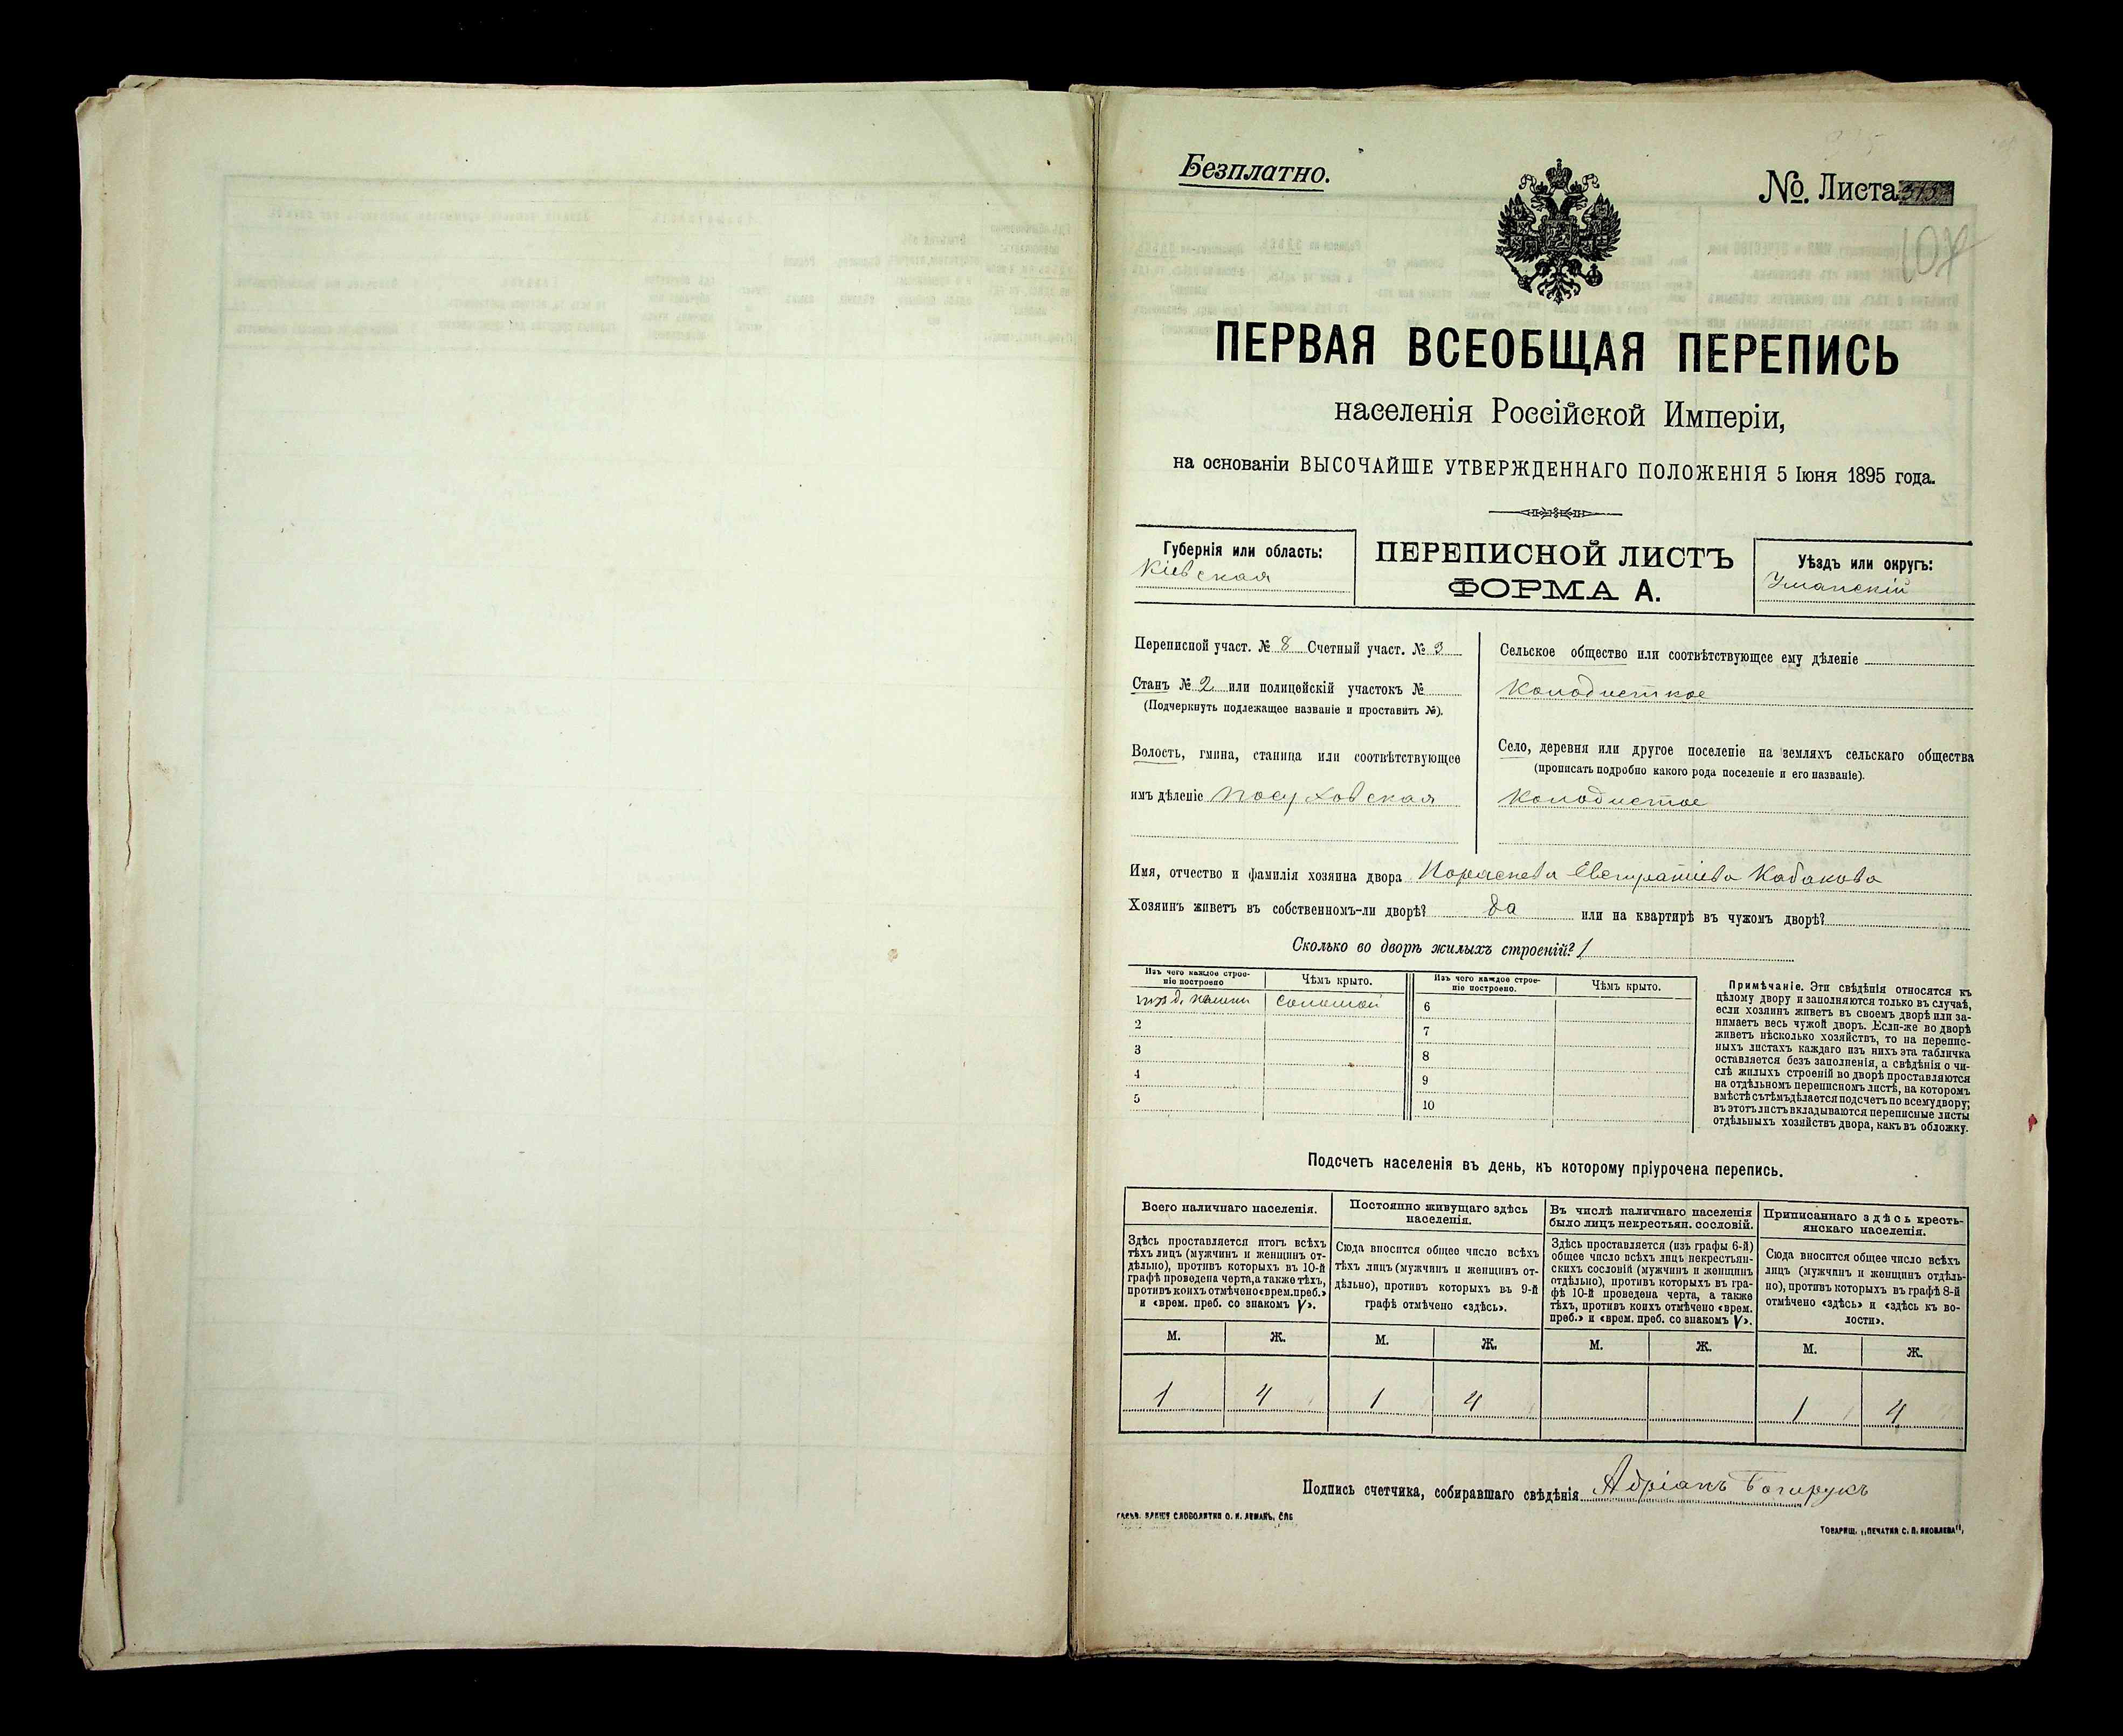 Безплатно.
№. Листа
ПЕРВАЯ ВСЕОБЩАЯ ПЕРЕПИСЬ
населенія Россійской Имперіи,
на основаніи ВЫСОЧАЙШЕ УТВЕРЖДЕННАГО ПОЛОЖЕНІЯ 5 Іюня 1895 года.
Губернія или область:
Кіевская
ПЕРЕПИСНОЙ ЛИСТЪ
ФОРМА А.
Уѣздъ или округъ:
Уманскій
Переписной участ. № 8 Счетный участ. № 3
Станъ № 2 или полицейскій участокъ №
(Подчеркнуть подлежащее названіе и проставить №).
Волость, гмина, станица или соотвѣтствующее
имъ дѣленіе Посуховская
Сельское общество или соотвѣтствующее ему дѣленіе
Колодисткое
Село, деревня или другое поселеніе на земляхъ сельскаго общества
(прописать подробно какого рода поселеніе и его названіе).
Колодистое
Имя, отчество и фамилія хозяина двора Параскева Евстратіева Кабакова
Хозяинъ живетъ въ собственномъ-ли дворѣ? да или на квартирѣ въ чужомъ дворѣ?
Сколько во дворѣ жилыхъ строеній? 1
Изъ чего каждое строе-
ніе построено
Чѣмъ крыто.
Изъ чего каждое строе-
ніе построено.
Чѣмъ крыто.
соломой
6
2
7
3
8
4
9
5
10
Примѣчаніе. Эти свѣдѣнія относятся къ
цѣлому двору и заполняются только въ случаѣ,
если хозяинъ живетъ въ своемъ дворѣ или за-
нимаетъ весь чужой дворъ. Если-же во дворѣ
живетъ нѣсколько хозяйствъ, то на перепис-
ныхъ листахъ каждаго изъ нихъ эта табличка
оставляется безъ заполненія, а свѣдѣнія о чи-
слѣ жилыхъ строеній во дворѣ проставляются
на отдѣльномъ переписномъ листѣ, на которомъ
вмѣстѣ съ тѣмъ дѣлается подсчетъ по всему двору;
въ этотъ листъ вкладываются переписные листы
отдѣльныхъ хозяйствъ двора, какъ въ обложку.
Подсчетъ населенія въ день, къ которому пріурочена перепись.
Всего наличнаго населенія.
Здѣсь проставляется итогъ всѣхъ
тѣхъ лицъ (мужчинъ и женщинъ от-
дѣльно), противъ которыхъ въ 10-й
графѣ проведена черта, а также тѣхъ,
противъ коихъ отмѣчено «врем. преб.»
и «врем. преб. со знакомъ V».
Постоянно живущаго здѣсь
населенія.
Сюда вносится общее число всѣхъ
тѣхъ лицъ (мужчинъ и женщинъ от-
дѣльно), противъ которыхъ въ 9-й
графѣ отмѣчено «здѣсь».
Въ числѣ наличнаго населенія
было лицъ некрестьян. сословій.
Здѣсь проставляется (изъ графы 6-й)
общее число всѣхъ лицъ некрестьян-
скихъ сословій (мужчинъ и женщинъ
отдѣльно), противъ которыхъ въ гра-
фѣ 10-й проведена черта, а также
тѣхъ, противъ коихъ отмѣчено «врем.
преб.» и «врем. преб. со знакомъ V».
Приписаннаго здѣсь кресть-
янскаго населенія.
Сюда вносится общее число всѣхъ
лицъ (мужчинъ и женщинъ отдѣль-
но), противъ которыхъ въ графѣ 8-й
отмѣчено «здѣсь» и «здѣсь къ во-
лости».
М. Ж. М. Ж. М. Ж. М. Ж.
1 4 1 4 1 4
Подпись счетчика, собиравшаго свѣдѣнія Адріанъ
ТОВАРИЩ. „ПЕЧАТНЯ С. П. ЯКОВЛЕВА",